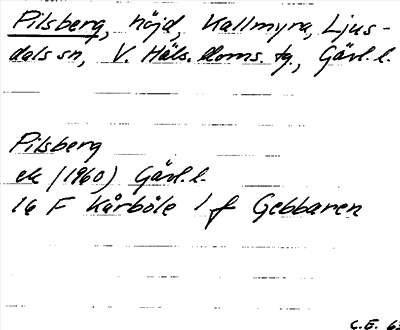 Pilsberg, höjd, Kallmyra, Ljus-
dals sn, V. Häls. doms. tg., Gävl. l.
Pilsberg
ek (1960) Gävl. l.
16 F Kårböle 1 f Gebbaren
C.E. 63